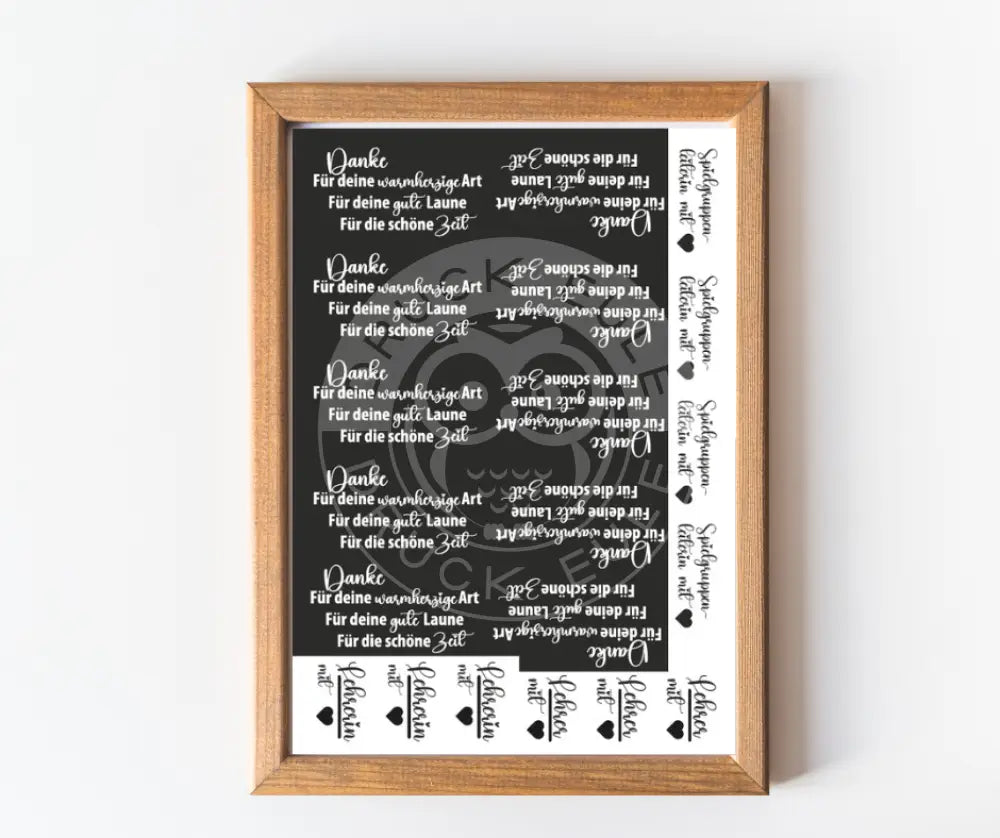 Danke
Für deine warmherzige Art
Für deine gute Laune
Für die schöne Zeit
Danke
Für deine warmherzige Art
Für deine gute Laune
Für die schöne Zeit
Danke
Für deine warmherzige Art
Für deine gute Laune
Für die schöne Zeit
Danke
Für deine warmherzige Art
Für deine gute Laune
Für die schöne Zeit
Danke
Für deine warmherzige Art
Für deine gute Laune
Für die schöne Zeit
Danke
Für deine warmherzige Art
Für deine gute Laune
Für die schöne Zeit
Danke
Für deine warmherzige Art
Für deine gute Laune
Für die schöne Zeit
Danke
Für deine warmherzige Art
Für deine gute Laune
Für die schöne Zeit
Danke
Für deine warmherzige Art
Für deine gute Laune
Für die schöne Zeit
Danke
Für deine warmherzige Art
Für deine gute Laune
Für die schöne Zeit
Spielgruppen-
leiterin mit ♥
Spielgruppen-
leiterin mit ♥
Spielgruppen-
leiterin mit ♥
Spielgruppen-
leiterin mit ♥
Lehrerin
mit ♥
Lehrerin
mit ♥
Lehrerin
mit ♥
Lehrer
mit ♥
Lehrer
mit ♥
Lehrer
mit ♥
DRUCK EULE
DRUCK EULE